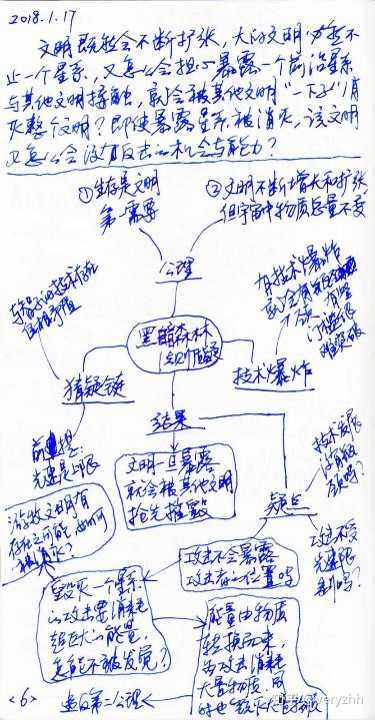 2018.1.17
文明既然会不断扩张，大的文明必然不
止一个星系，又怎么会担心暴露一个前沿星系
与其他文明接触，就会被其他文明“一下子”消
灭整个文明？即使暴露星系被消灭，该文明
又怎么会没有反击的机会与能力？
①生存是文明
第一需要
②文明不断增长和扩张
但宇宙中物质总量不变
公理
黑暗森林
猜疑链
技术爆炸
有技术爆炸
结果
前提：
光速是上限
文明一旦暴露
就会被其他文明
抢先摧毁
疑点
技术发展
没有极
限吗？
游牧文明有
存在之可能，如何
攻击不受
光速限
制吗？
攻击不会暴露
攻击者的位置吗
毁灭一个星系
的攻击要消耗
超巨大的能量，
怎能不被发觉？
能量由物质
转换而来，
为攻击消耗
大量物质，同
时也毁灭大量物质
违反第二公理
<6>